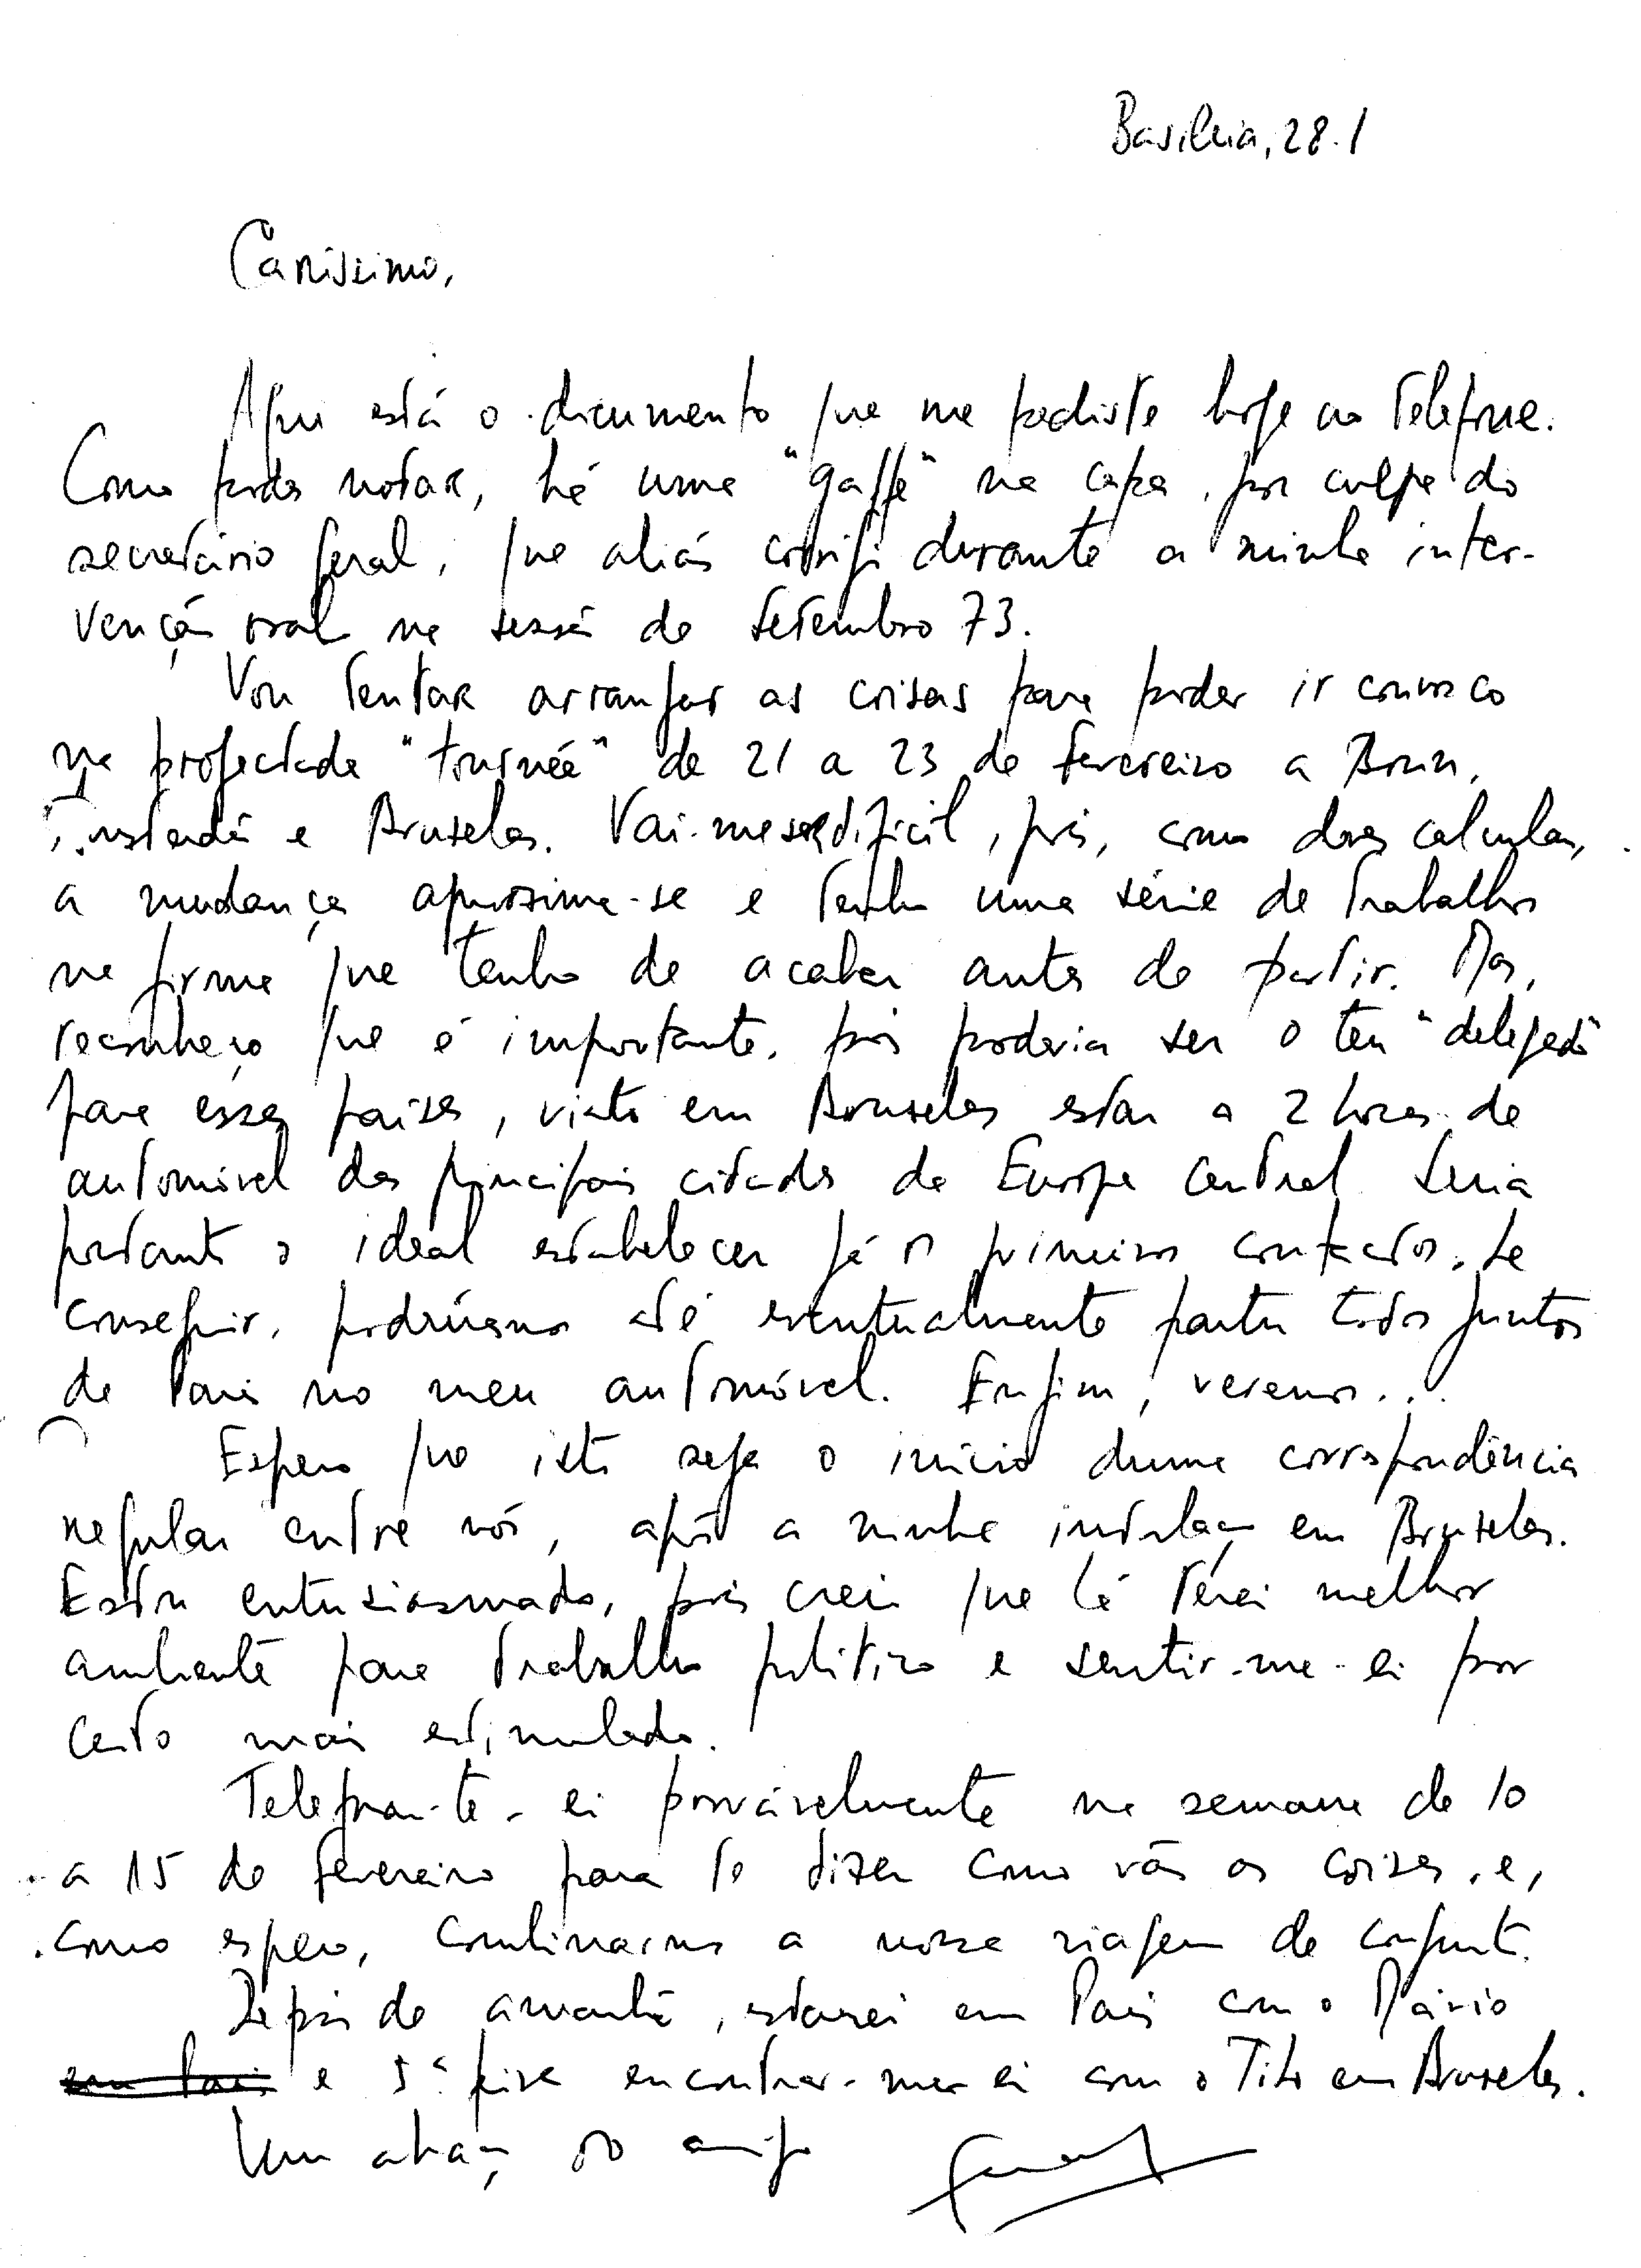 Basileia, 28.1
Caríssimo,
Aqui está o documento que me pediste hoje ao telefone.
Como podes notar, há uma "gaffe" na capa, por culpa do
secretário geral, que aliás corrigi durante a minha inter-
venção oral na sessão de Setembro 73.
Vou tentar arranjar as coisas para poder ir convosco
na projectada "tournée" de 21 a 23 de fevereiro a Bonn,
e Bruxelas. Vai-me ser difícil, pois, como deves calcular,
a mudança aproxima-se e tenho uma série de trabalhos
na firma que tenho de acabar antes de partir. Mas,
reconheço que é importante, pois poderia ser o teu "delegado"
para esses países, visto em Bruxelas estar a 2 horas de
automóvel das principais cidades da Europa Central. Seria
portanto o ideal estabelecer já os primeiros contactos. Se
conseguir, podríamos até eventualmente partir todos juntos
de Paris no meu automóvel. Enfim, veremos...
Espero que isto seja o início duma correspondência
regular entre nós, após a minha instalação em Bruxelas.
Estou entusiasmado, pois creio que lá terei melhor
ambiente para trabalho político e sentir-me-ei por
certo mais estimulado.
Telefonar-te-ei provávelmente na semana de 10
a 15 de fevereiro para te dizer como vão as coisas, e,
como espero, combinarmos a nossa viagem de conjunto.
Depois de amanhã, estarei em Paris com o Mário
em Paris e 5ª feira encontrar-me-ei com o Tito em Bruxelas.
Um abraço do amigo